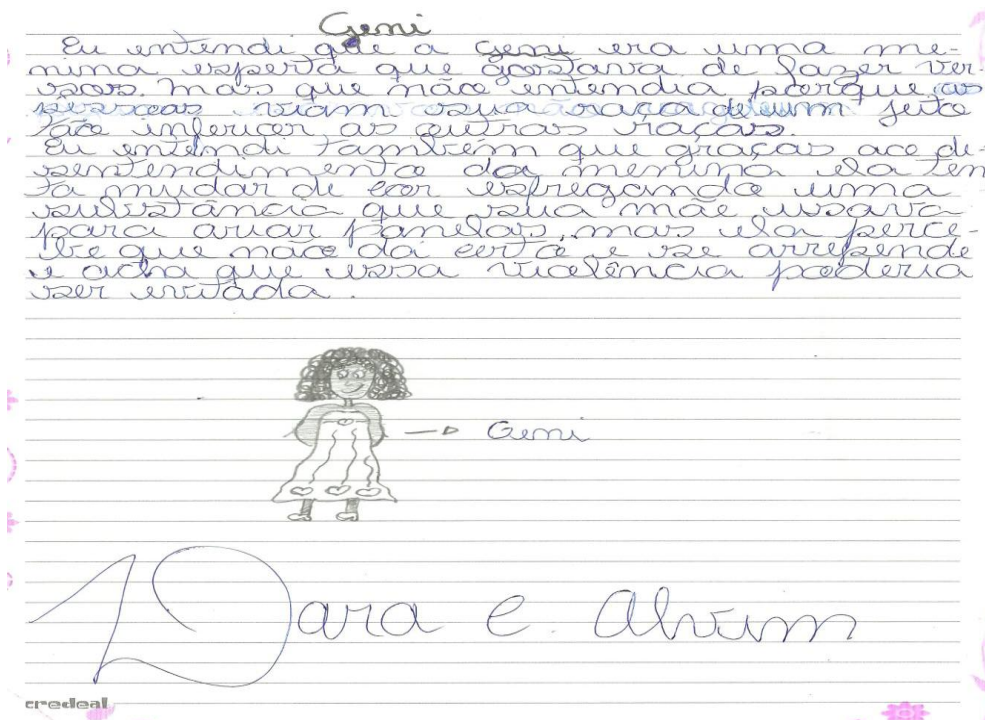 Geni
Eu entendi que a Geni era uma me-
nina esperta que gostava de fazer ver-
sos. mas que não entendia porque as
pessoas viam sua raça de um jeito
tão inferior as outras raças.
Eu entendi também que graças ao de-
sentendimento da menina ela ten
ta mudar de cor esfregando uma
substância que sua mãe usava
para ariar panelas, mas ela perce-
be que não dá certo e se arrepende
e acha que essa violência poderia
ser evitada.
Geni
Dara e. Alvim
credeal